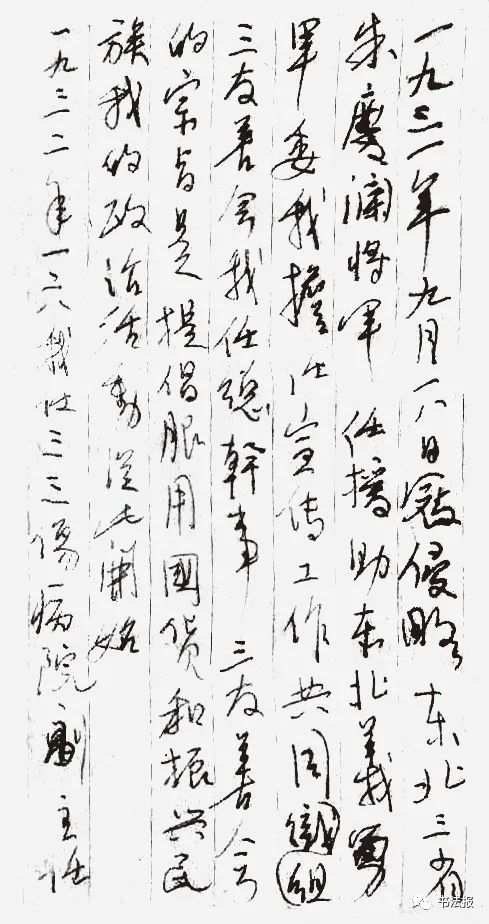 一九三一年九月一八日寇侵略东北三省
朱慶瀾將軍 任援助东北義勇
軍委我擔任宣传工作共同創組
三友善会我任總幹事 三友善会
的宗旨是提倡服用國货和振兴民
族我的政治活動從此開始
一九三二年一二八我任三三傷病院副主任
书法报